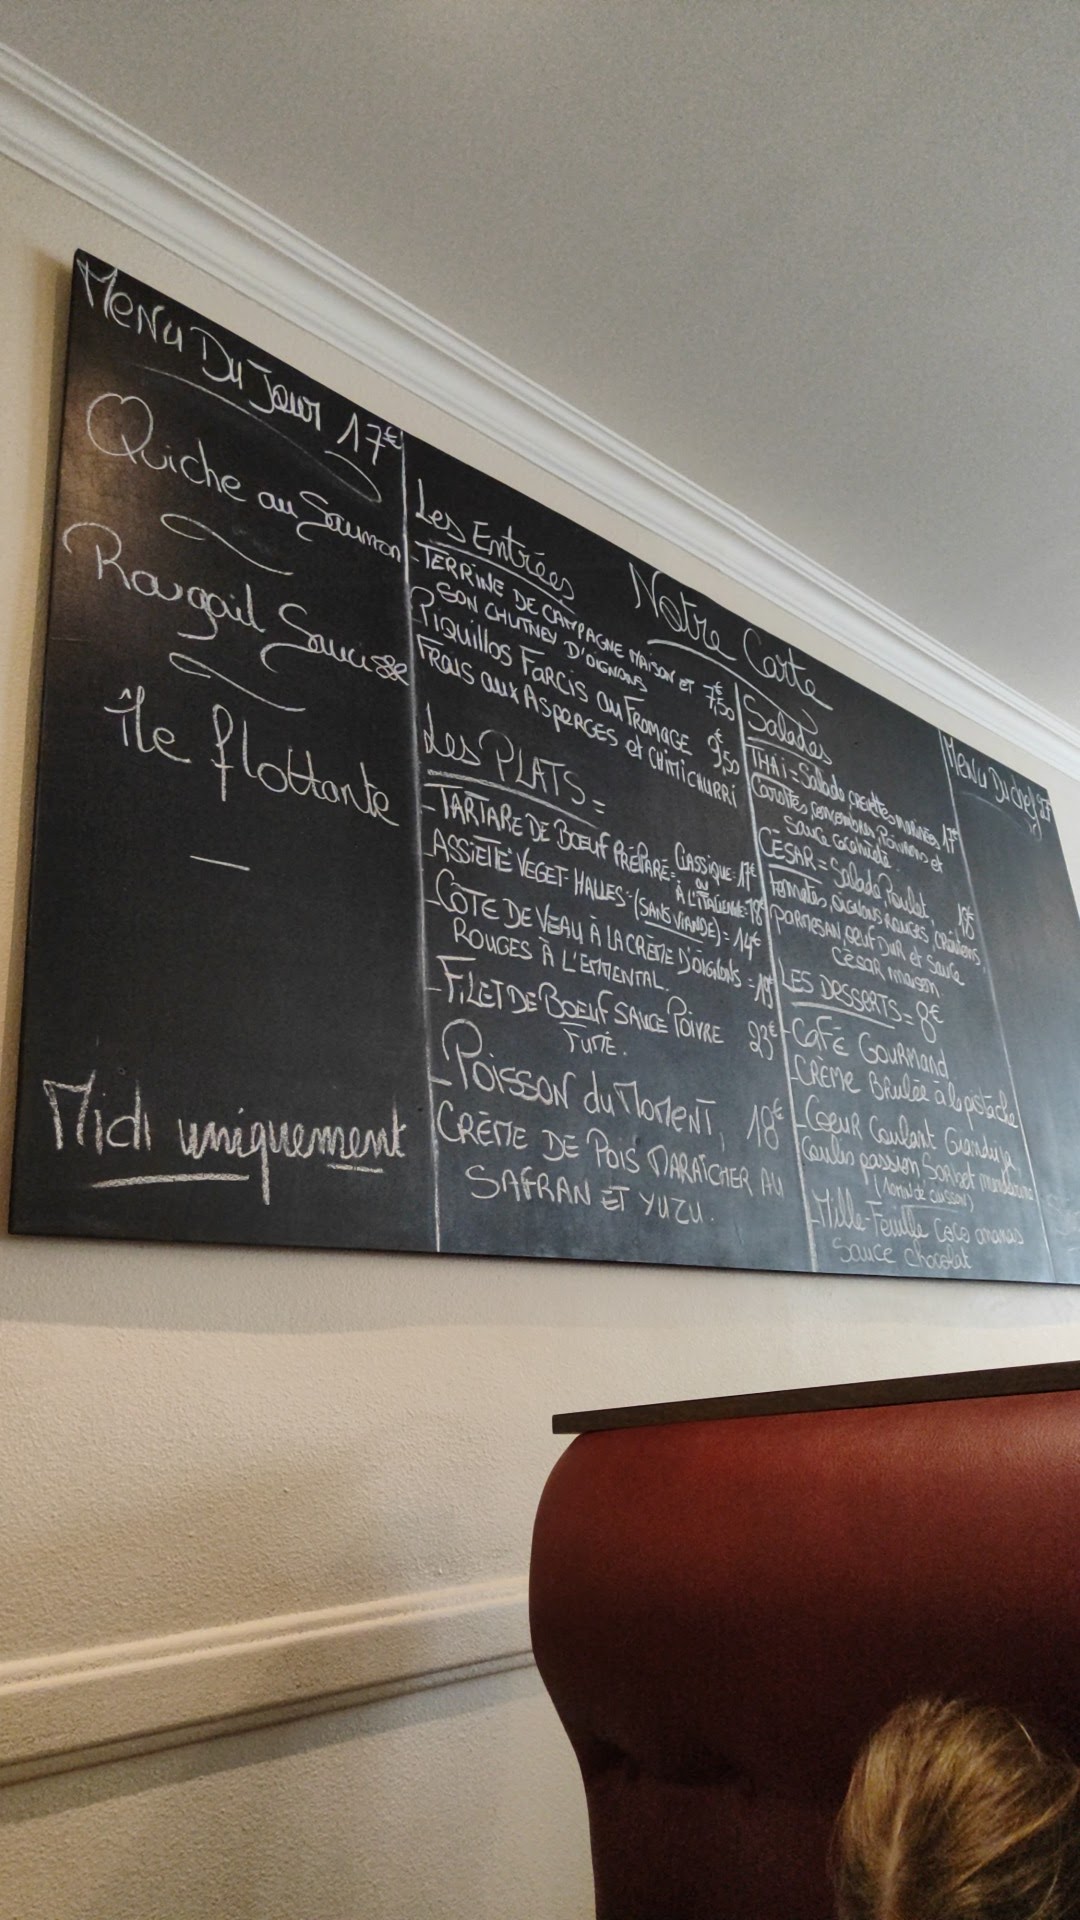 Menu Du Jour 17€
Quiche au Saumon
Rougail Saucisse
Île flottante
Midi uniquement
Notre Carte
Les Entrées
-TERRINE DE CAMPAGNE MAISON ET 7,50€
SON CHUTNEY D'OIGNONS
Piquillos FARCIS au FROMAGE 9,50€
FRAIS aux ASPERGES et CHIMICHURRI
Les PLATS =
-TARTARE DE BŒUF PRÉPARÉ = CLASSIQUE = 17€
ou
À L'ITALIENNE = 18€
-ASSIETTE VEGET-HALLES = (SANS VIANDE) = 14€
-CÔTE DE VEAU À LA CRÈME D'OIGNONS = 19€
ROUGES À L'EMMENTAL.
-FILET DE BŒUF SAUCE POIVRE 23€
FUMÉ.
-POISSON du MOMENT, 18€
CRÈME DE POIS MARAÎCHER AU
SAFRAN ET YUZU.
Salades
THAÏ = Salade, crevettes marinées, 17€
Carottes, concombres, Poivrons et
sauce cacahuète.
CÉSAR = Salade, Poulet,
tomates, oignons rouges, croûtons,
PARMESAN, œuf DUR et sauce
CÉSAR maison
LES DESSERTS = 8€
-CAFÉ GOURMAND
-CRÈME BRULÉE à la pistache
-CŒUR Coulant Gianduja
Coulis passion Sorbet mandarine
(10min de cuisson)
-Mille-Feuille coco ananas
Sauce chocolat
Menu Du chef